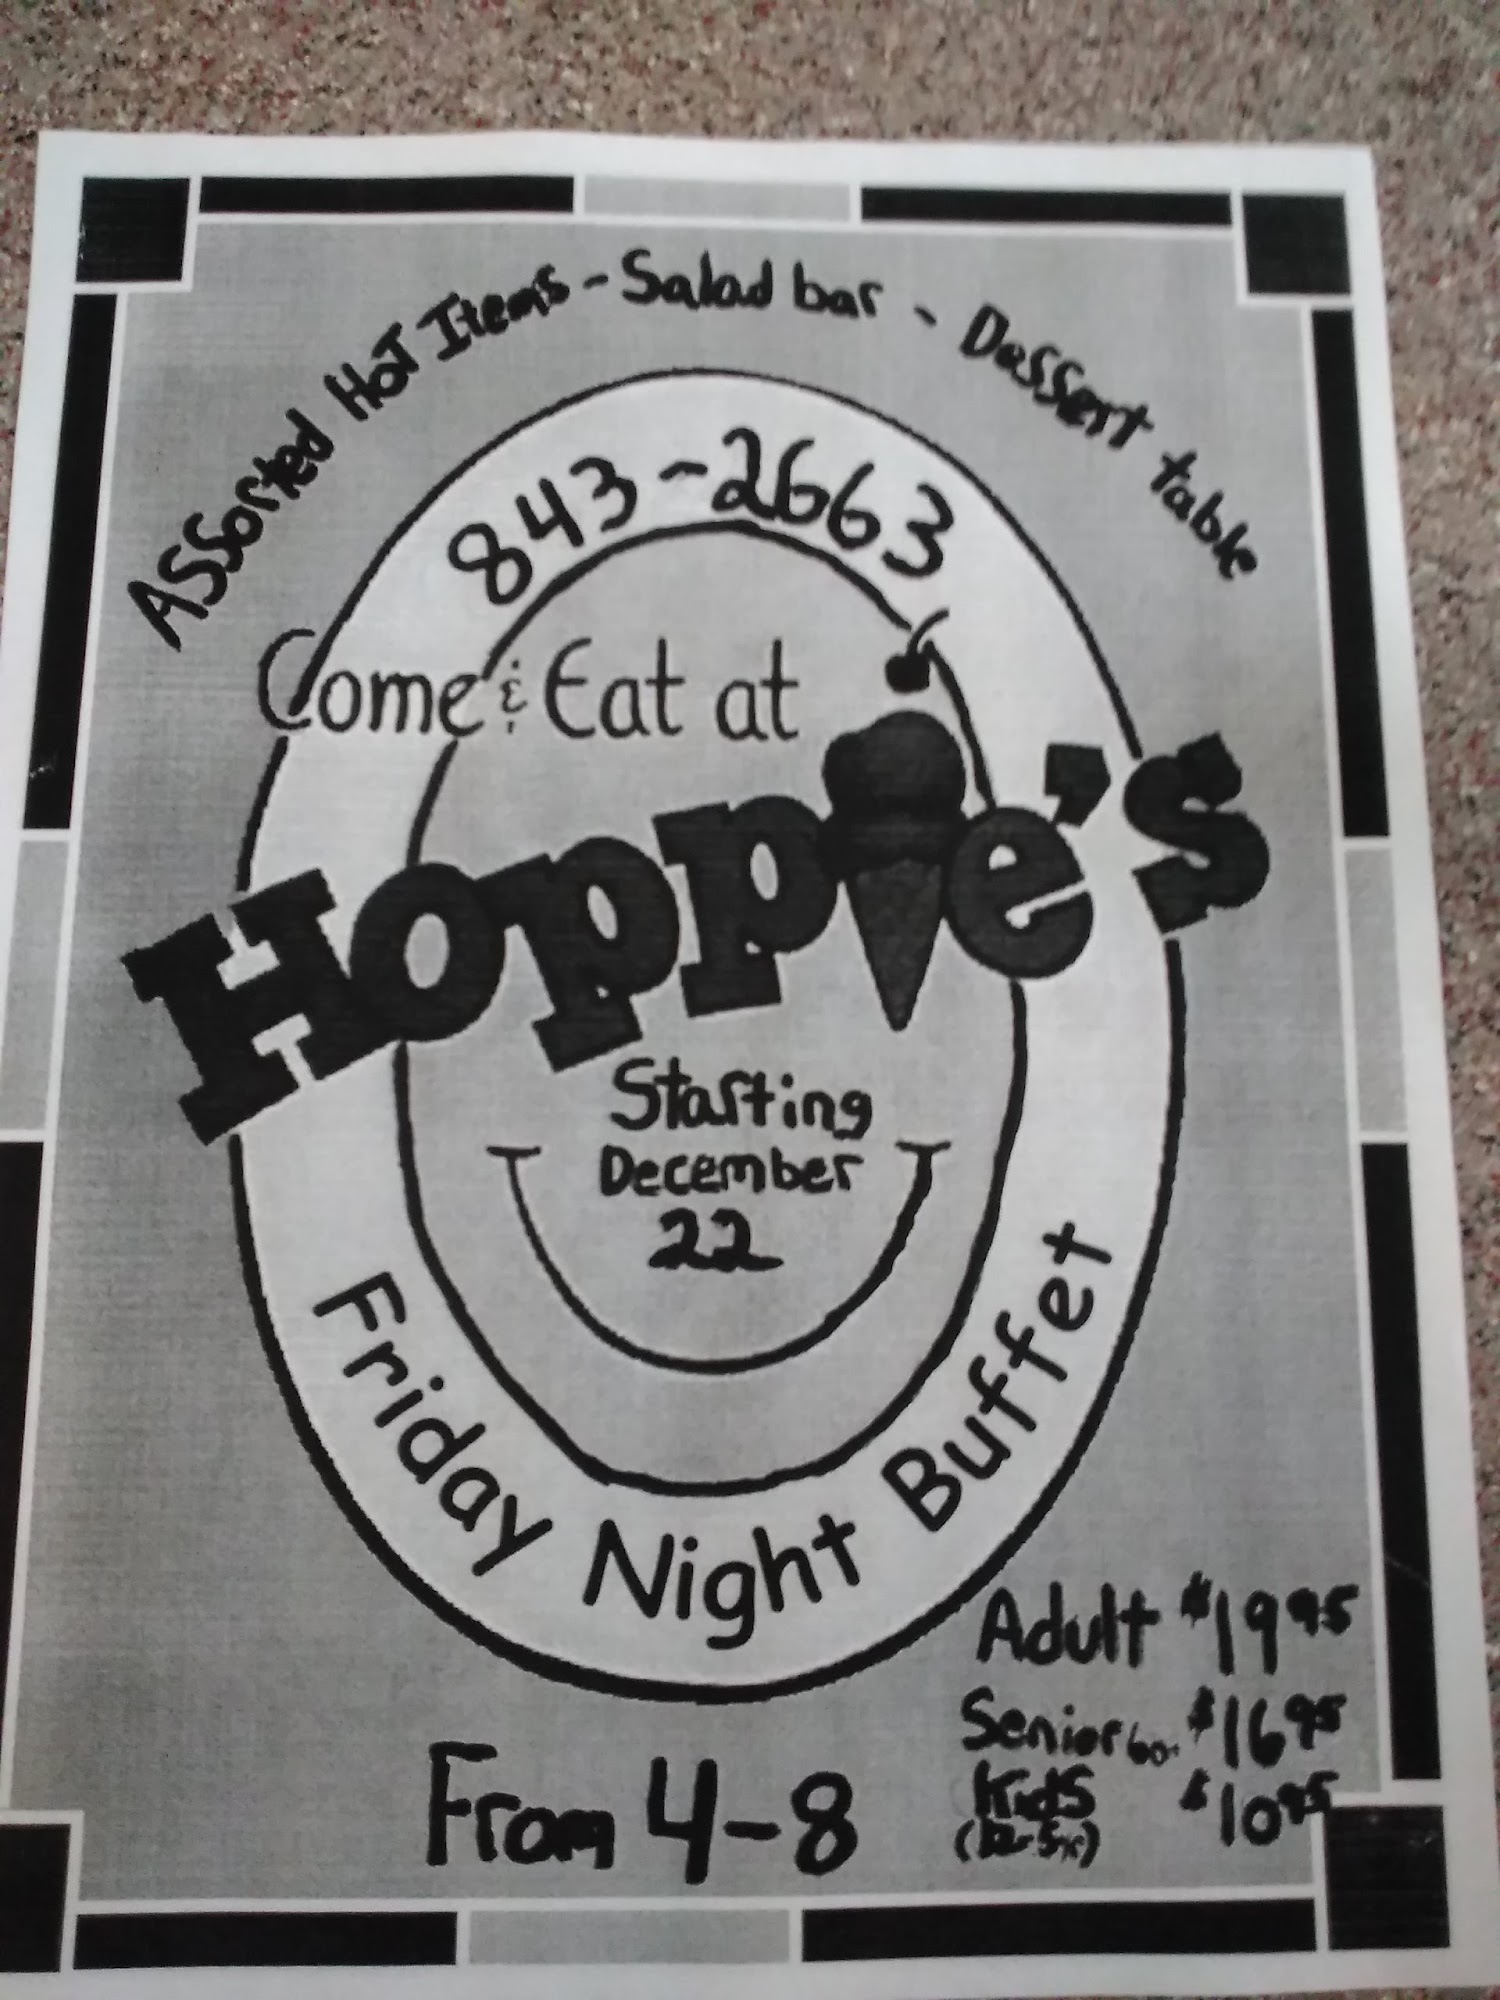 Assorted Hot Items - Salad bar - Dessert table
843-2663
Come & Eat at
Hoppie's
Starting
December
22
Friday Night Buffet
From 4-8
Adult $19.95
Senior 60+ $16.95
Kids $10.95